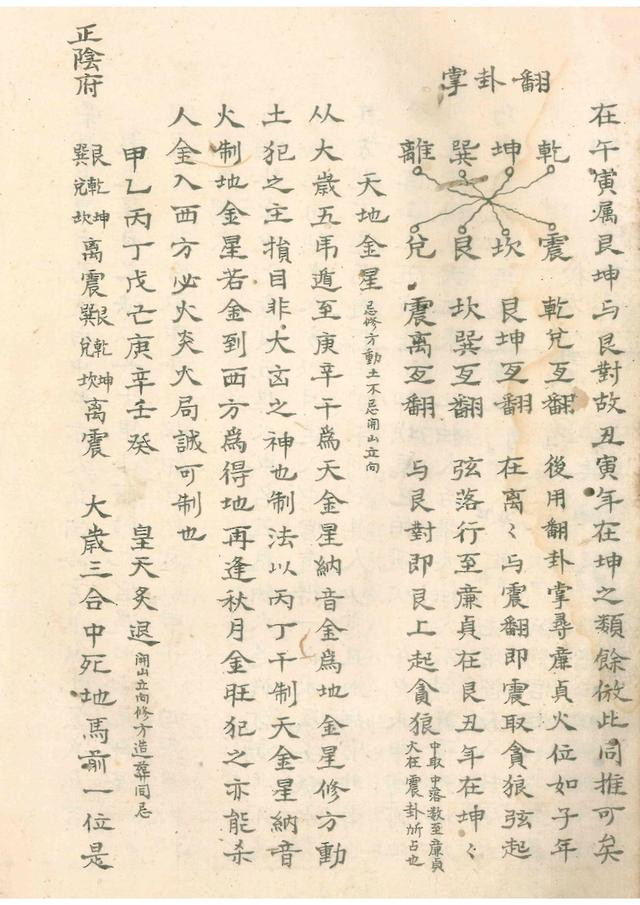 在午寅属艮坤与艮對故丑寅年在坤之類餘倣此同推可矣
翻卦掌
乾 震 乾兌互翻 後用翻卦掌尋廉貞火位如子年
坤 坎 艮坤互翻 在离〻与震翻即震取貪狼弦起
巽 艮 坎巽互翻 弦落行至廉貞在艮丑年在坤〻
離 兌 震离互翻 与艮對即艮上起貪狼 中取中落数至廉貞火在震卦所占也
天地金星 忌修方動土不忌開山立向
从大歳五乕遁至庚辛干爲天金星納音金爲地金星修方動
土犯之主損目非大凶之神也制法以丙丁干制天金星納音
火制地金星若金到西方爲得地再逢秋月金旺犯之亦能杀
人金入西方必火炎火局誠可制也
正陰府
甲乙丙丁戊己庚辛壬癸 皇天炙退 開山立向修方造葬同忌
艮巽 乾兌 坤坎 离 震 艮巽 乾兌 坤坎 离 震 大歳三合中死地馬前一位是